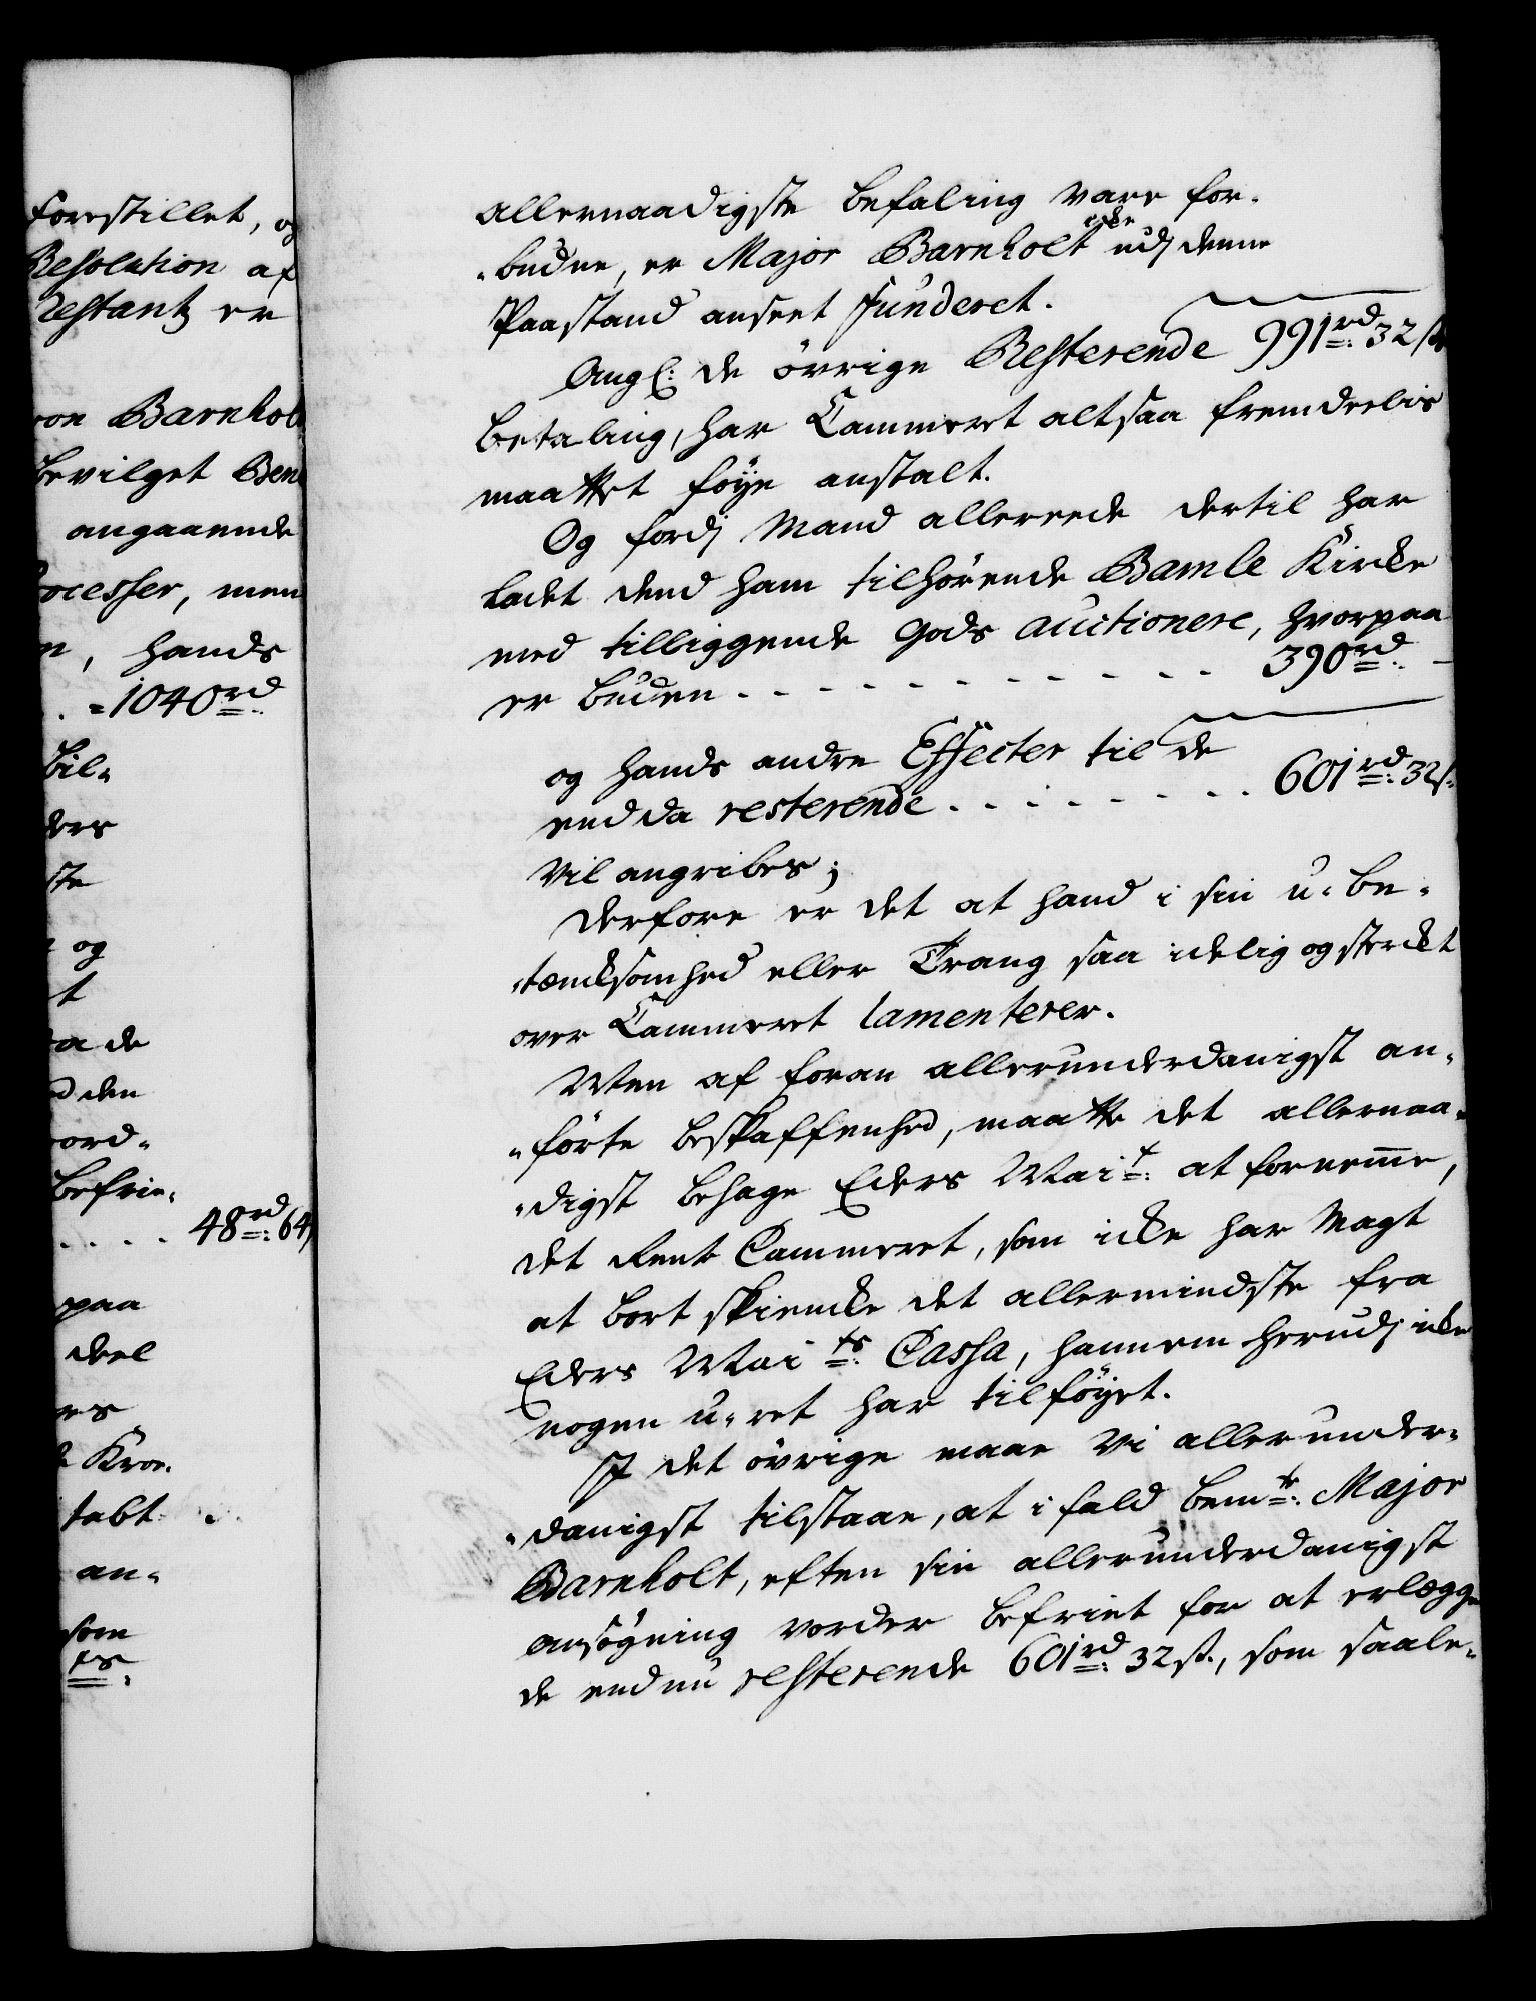 forestillet, og
Resolution af
Restantz er
von Barnhol
bevilget Ben
angaaende
ocesser, men
n, hands
. =1040rd
bil=
ders
ste
og
t
a de
d den
ord=
befrie=
. . . . 48rd: 64
paa
deel
es
Kroe.
tabt
an=
som
ts:
allernaadigste befaling vare for=
=budne, er Major Barnholt icke udj denne
Paastand anseet funderet.
Angl: de övrige Resterende 991rd: 32 ß
betaling, har Cammeret altsaa fremdeelis
maattet föye anstalt.
Og fordj Mand allereede dertil har
ladet dend ham tilhörende Bamle Kirke
med tilliggende Gods auctionere, hvorpaa
er buden . . . . . . . . . . . . 390rd: -
og hands andre Effecter til de
endda resterende . . . . . . . . 601rd: 32ß.
vil angribes;
derfore er det at hand i sin u=be=
=tæncksomhed eller Trang saa idelig og sterckt
over Cammeret lamenterer.
Men af foran allerunderdanigst an=
=förte beskaffenhed, maatte det allernaa=
=digst behage Eders Mait: at fornemme,
det Rente Cammeret, som icke har Magt
at bort skiencke det allermindste fra
Eders Maits: Cassa, hannem herudj icke
nogen u=ret har tilföyet.
I det övrige maae vi allerunder=
=danigst tilstaae, at i fald bemte: Major
Barnholt, efter sin allerunderdanigst
ansögning vorder befriet for at erlægge
de endnu resterende 601rd: 32ß., som saale=